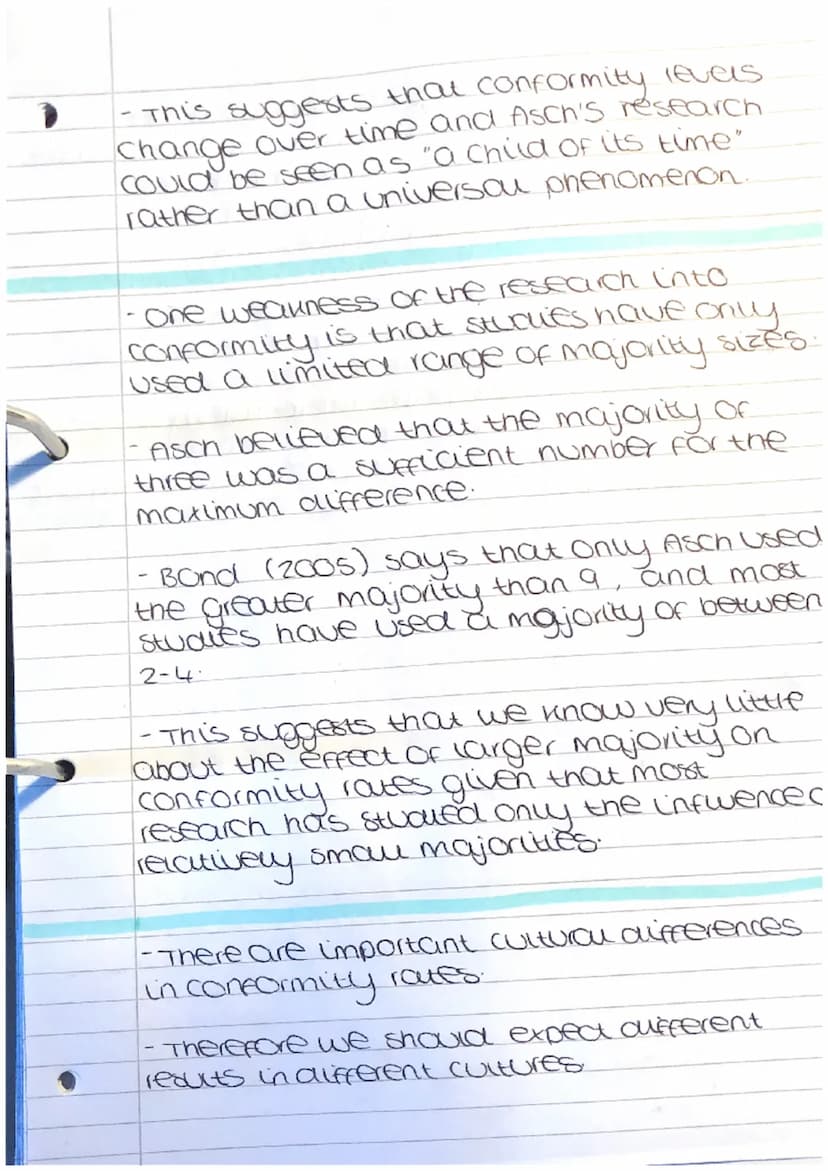 - This suggests that conformity levels
change over time and Asch's research
could be seen as "a child of its time"
rather than a universal phenomenon.
- One weakness of the research into
conformity is that studies have only
used a limited range of majority sizes.
- Asch believed that the majority of
three was a sufficient number for the
maximum difference.
- Bond (2005) says that only Asch used
the greater majority than 9, and most
studies have used a majority of between
2-4.
- This suggests that we know very little
about the effect of larger majority on
conformity rates given that most
research has studied only the influence o
relatively small majorities.
- There are important cultural differences
in conformity rates.
- Therefore we should expect different
results in different cultures